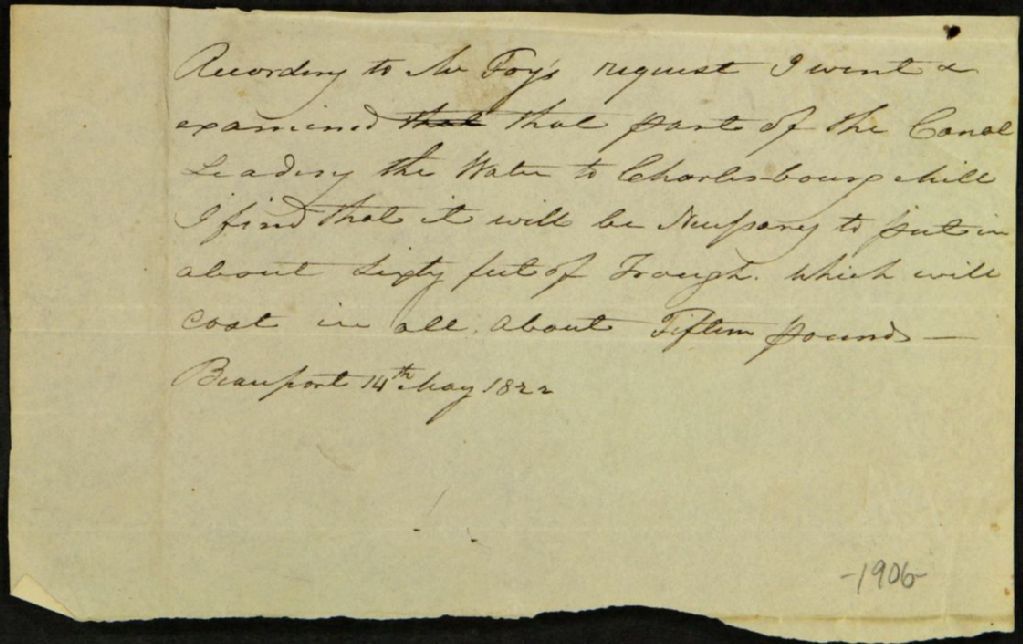 According to Mr Foy's request I went &
examined ~~that~~ that part of the Canal
Leading the Water to Charlesbourg Mill
I find that it will be Nessary to put in
about Sixty feet of Trough. which will
cost in all. about Fifteen pounds —
Beauport 14th May 1822
-1906-